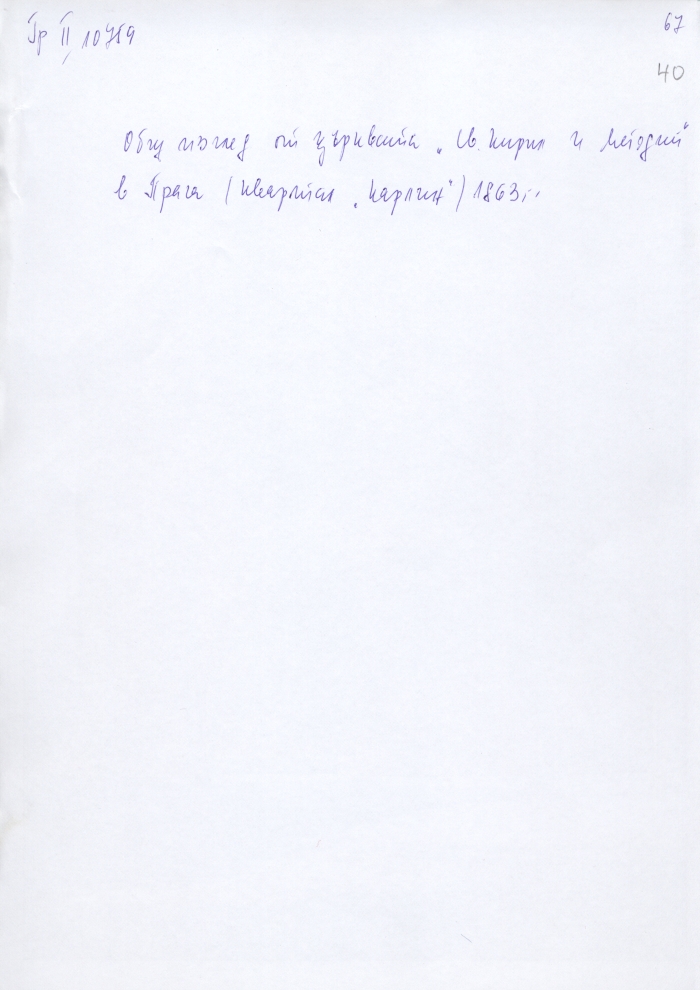 Гр II, 10759
67
40
Общ изглед от църквата „Св. Кирил и Методий“
в Прага (квартал „Карлин“) 1863 г.